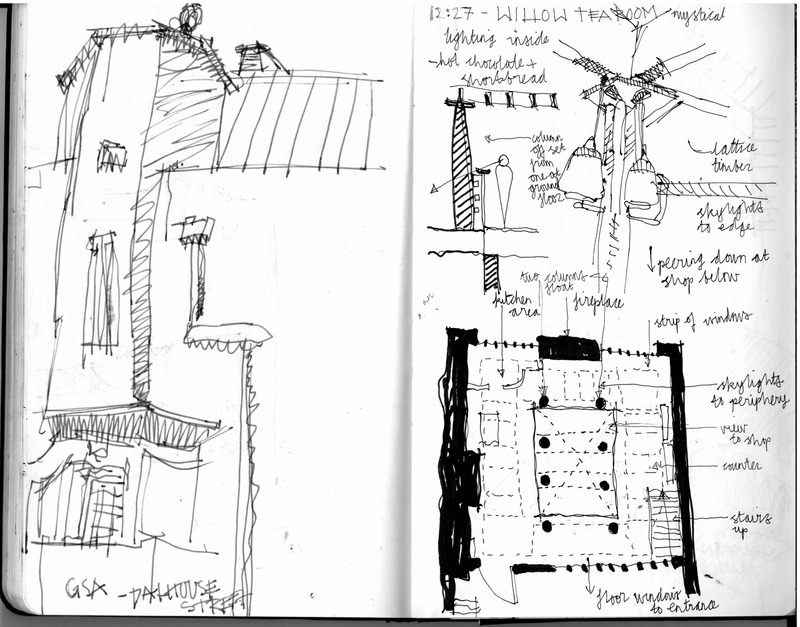 GSA - DALHOUSE
STREET
12:27 - WILLOW TEA ROOM
mystical
lighting inside
- hot chocolate +
shortbread
column
off set
from
one at
ground
floor
lattice
timber
skylights
to edge
peering down at
shop below
two columns
float
kitchen
area
fireplace
strip of windows
skylights
to periphery
view
to shop
counter
stairs
up
floor windows
to entrance